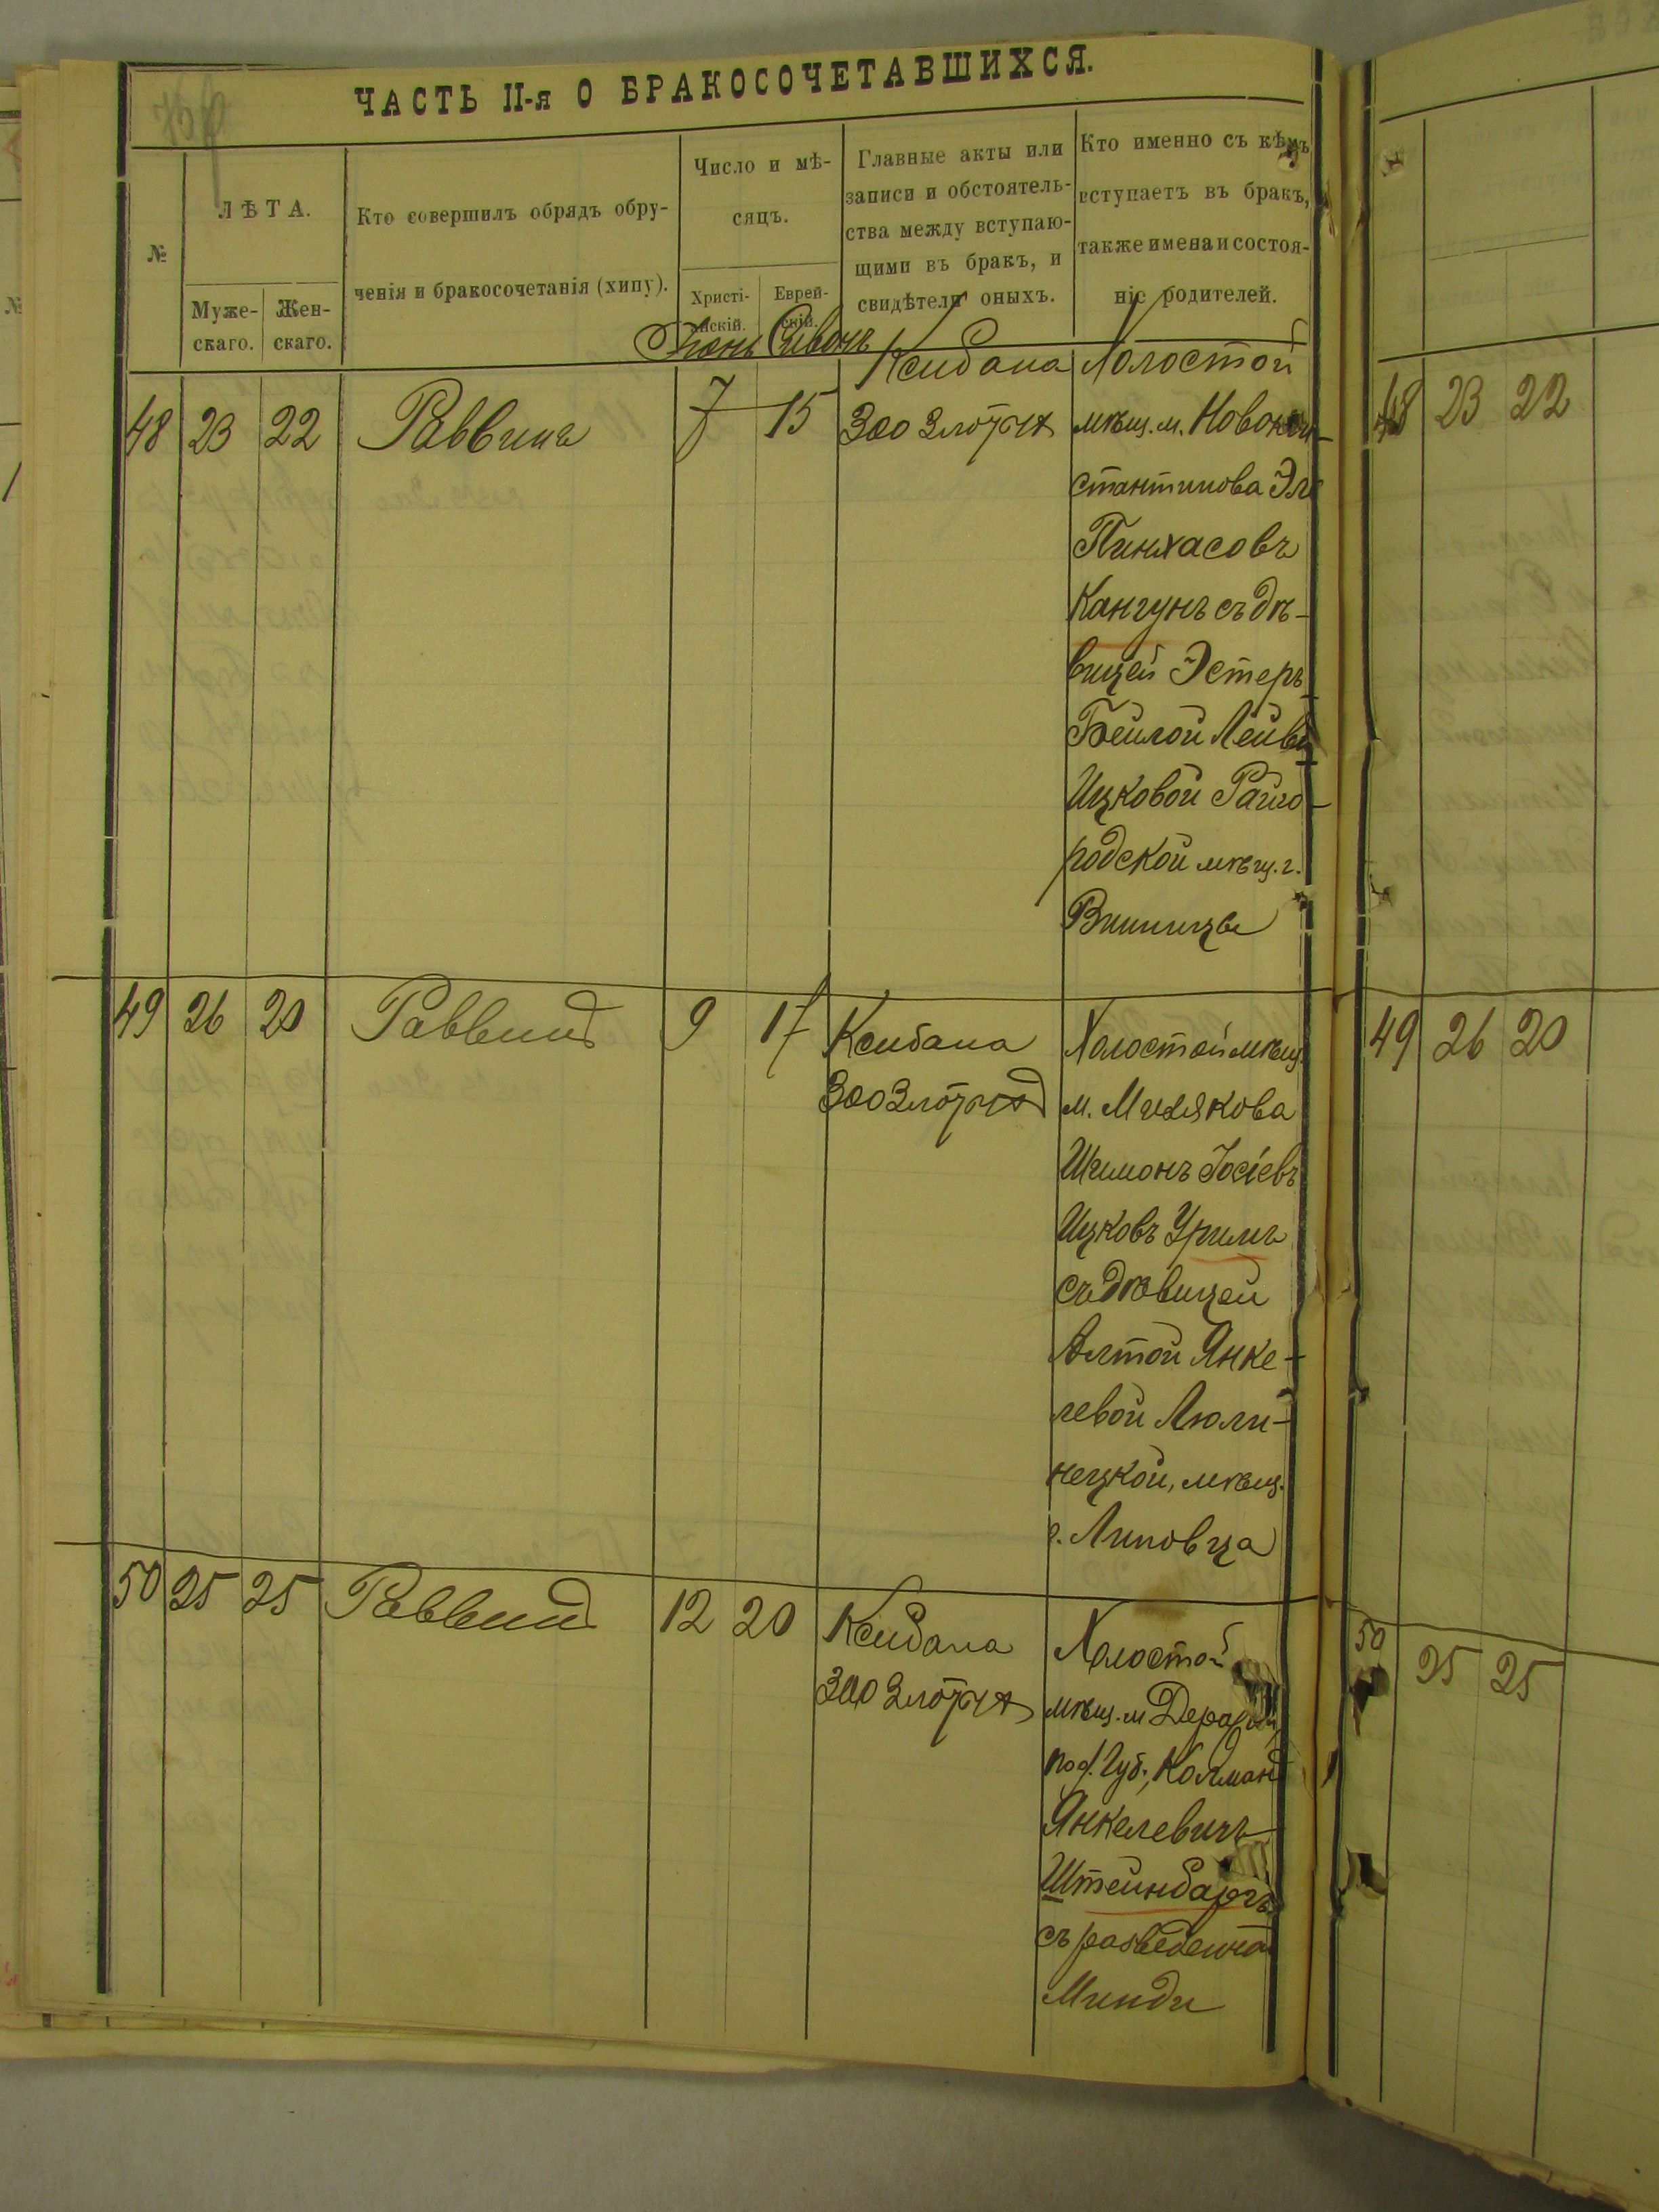 ЧАСТЬ II-я О БРАКОСОЧЕТАВШИХСЯ.
№
ЛѢТА.
Муже-
скаго.
Жен-
скаго.
Кто совершилъ обрядъ обру-
ченія и бракосочетанія (хипу).
Число и мѣ-
сяцъ.
Христі-
анскій.
Еврей-
скій.
Главные акты или
записи и обстоятель-
ства между вступаю-
щими въ бракъ, и
свидѣтели оныхъ.
Кто именно съ кѣмъ
вступаетъ въ бракъ,
также имена и состоя-
ніе родителей.
Іюнь Сивонъ
48 23 22 Раввинъ 7 15
Ксибана
300 злотых
Холостой
мѣщ. м. Новокон-
стантинова Эль
Пинхасовъ
Кангунъ съ дѣ-
вицей Эстеръ
Бейлой Лейви
Ицковой Райго-
родской мѣщ. г.
Винницы
49 26 20 Раввинъ 9 17
Ксибана
300 злотых
Холостой мѣщ.
м. Мизякова
Шимонъ Іосіевъ
Ицковъ Уримъ
съ дѣвицей
Алтой Янке-
левой Люли-
нецкой, мѣщ.
г. Липовца
50 25 25 Раввинъ 12 20
Ксибана
300 злотых
Холостой
мѣщ. м
под. Губ., Колманъ
Янкелевичъ
Штейнбаргъ
съ разведенной
Минди
48 23 22
49 26 20
50 25 25